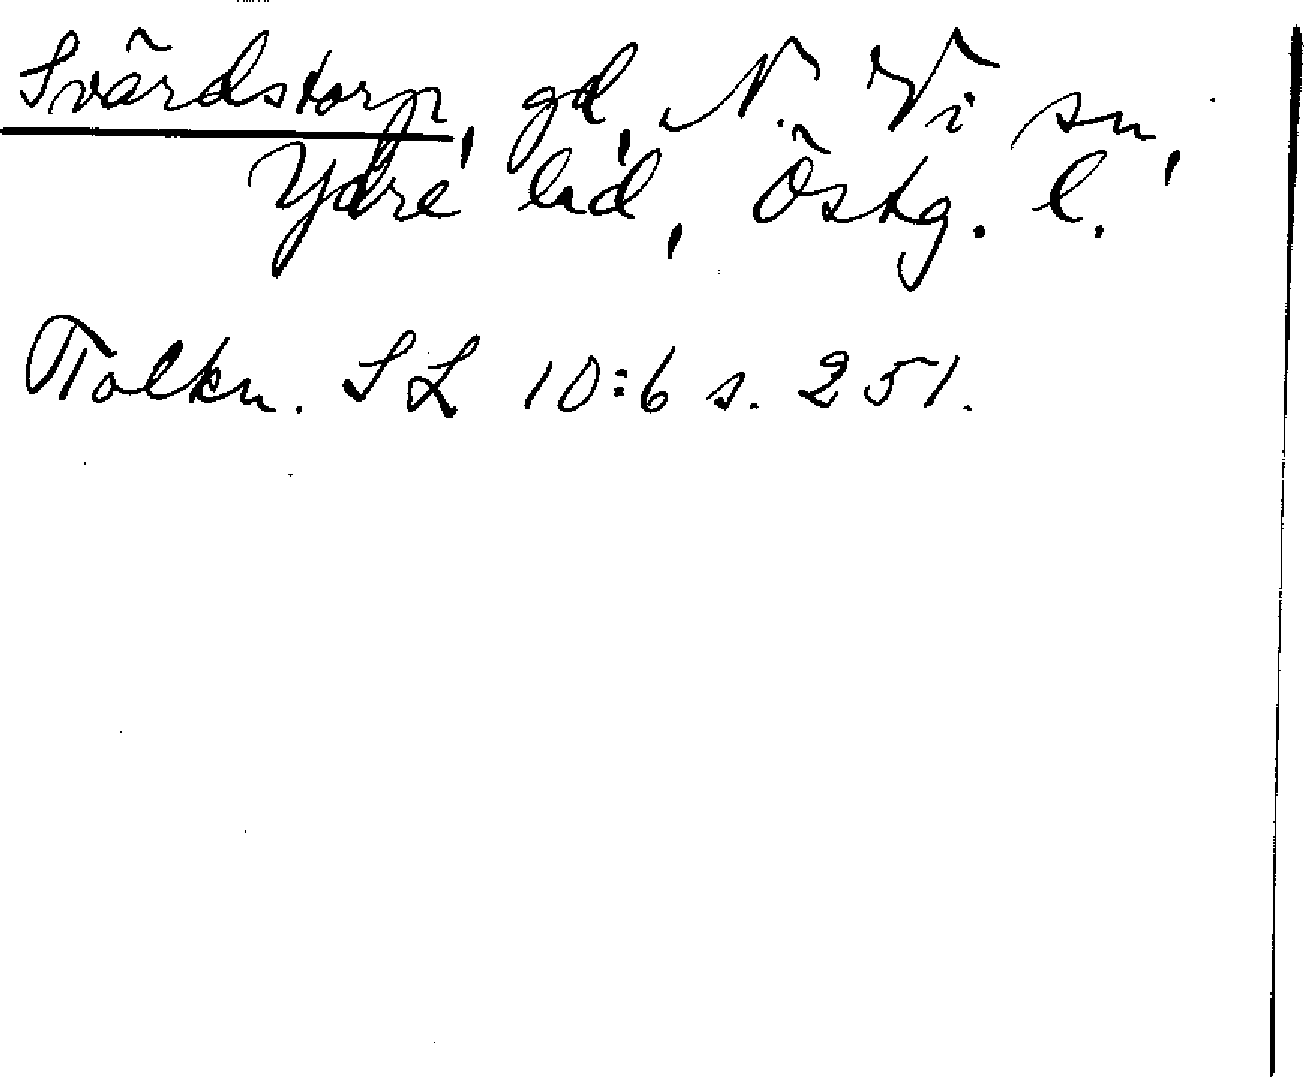 Svärdstorp, gd, N. Vi sn,
Ydre hd, Östg. l.
Tolkn. SL 10:6 s. 251.